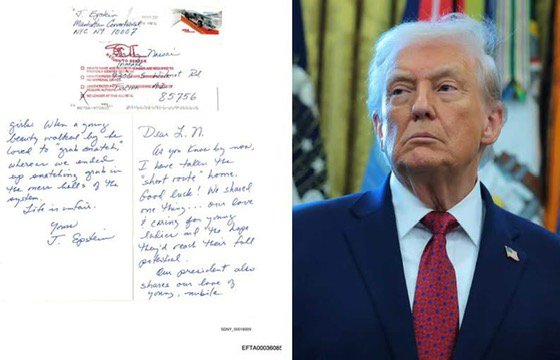 J. Epstein
Manhattan Correctional
NYC NY 10007
RETURN TO SENDER
85756
Dear L.N.
As you know by now,
I have taken the
"short route" home.
Good luck! We shared
one thing... our love
& caring for young
ladies and the hope
they'd reach their full
potential.
Our president also
shares our love of
young, nubile
girls. When a young
beauty walked by he
loved to "grab snatch"
whereas we ended
up snatching grub in
the mess halls of the
system.
Life is unfair.
Yours
J. Epstein
EFTA00036085